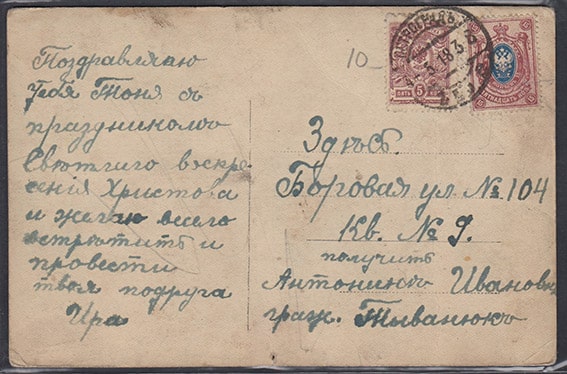 Поздравляю
тебя Тоня съ
праздникомъ
Свѣтлаго воскре-
сенія Христова
и желаю весело
встрѣтить и
провести
твоя подруга
Ира
10-
ПЯТЬ 5
15
Здѣсь.
Боровая ул. № 104
Кв. № 9.
получить
Антонинѣ Ивановнѣ
граж.